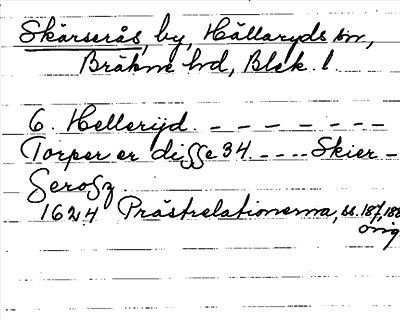 Skärserås, by, Hällaryds sn,
Bräkne hd, Blek. l.
6. Hellerijd. - - - - - - -
Torper er digge 34. - - - - Skier -
Serosz.
1624 Prästrelationerna, ss. 187, 188
orig